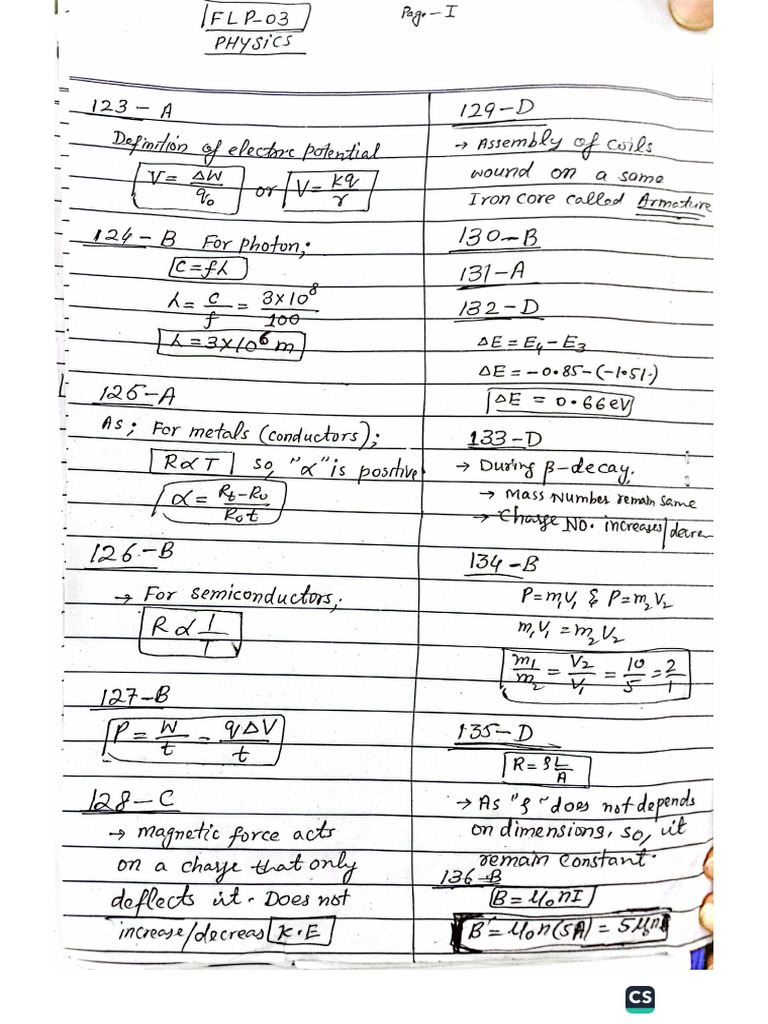 FLP-03
Page-I
PHYSICS
123-A
Definition of electric potential
V = ΔW/q₀ or V = kq/r
124-B For photon;
C=fλ
λ = c/f = 3×10⁸/100
λ=3×10⁶m
125-A
As; For metals (conductors);
R∝T so, "α" is positive
α = Rt-R₀/R₀t
126-B
→ For semiconductors;
R∝1/T
127-B
P = W/t = qΔV/t
128-C
→ magnetic force acts
on a charge that only
deflects it. Does not
increase/decreas K.E
129-D
→ Assembly of coils
wound on a same
Iron core called Armature
130-B
131-A
132-D
ΔE = E₄-E₃
ΔE = -0.85-(-1.51)
ΔE = 0.66eV
133-D
→ During β-decay,
→ Mass Number remain same
→ Charge NO. increases/decre
134-B
P=m₁V₁ & P=m₂V₂
m₁V₁ = m₂V₂
m₁/m₂ = V₂/V₁ = 10/5 = 2/1
135-D
R = ρL/A
→ As "ρ" does not depends
on dimensions, so, it
remain constant.
136-B
B = μ₀nI
B' = μ₀n(5A) = 5μ₀n
CS